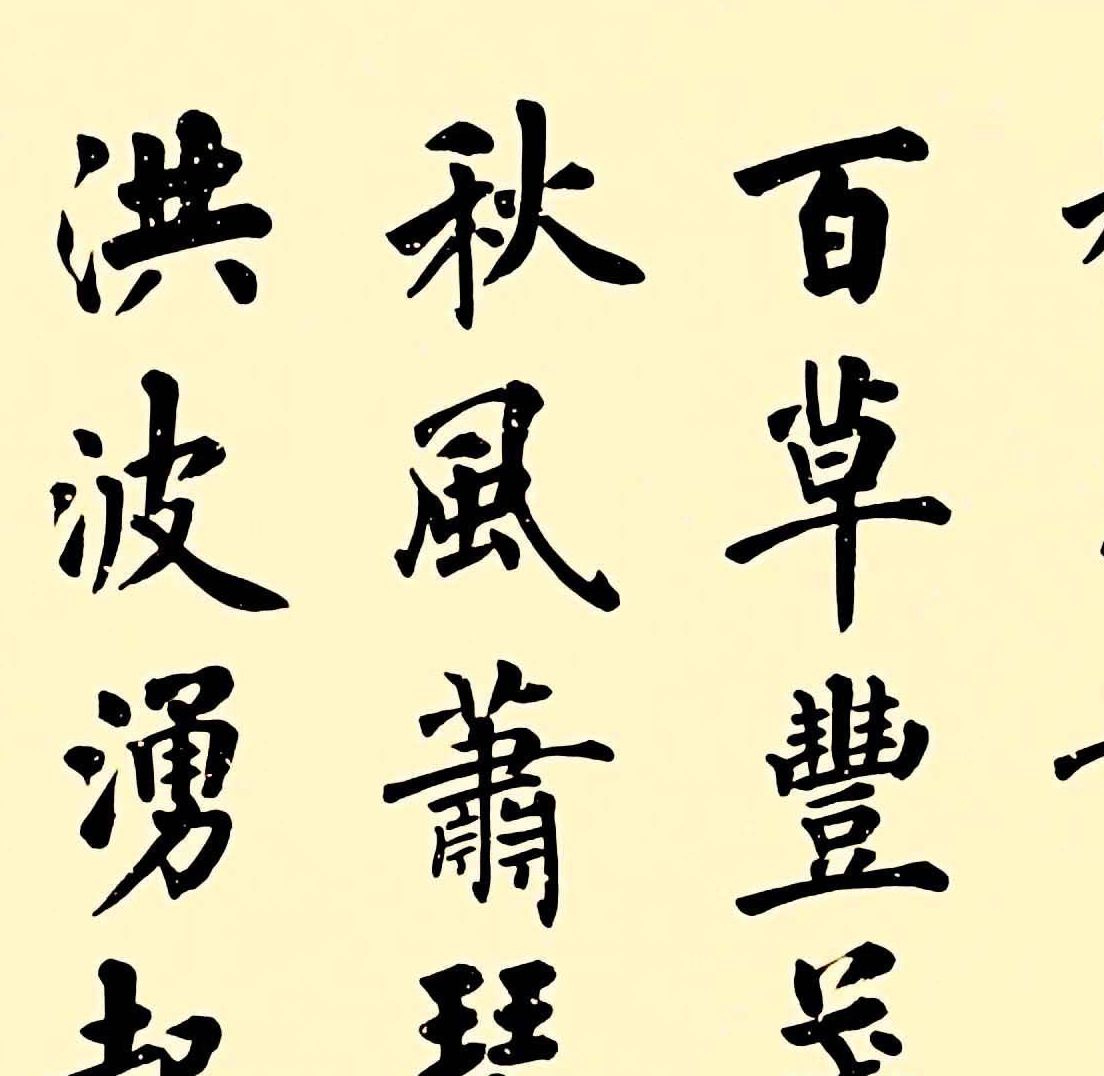 百草豐
秋風蕭
洪波湧